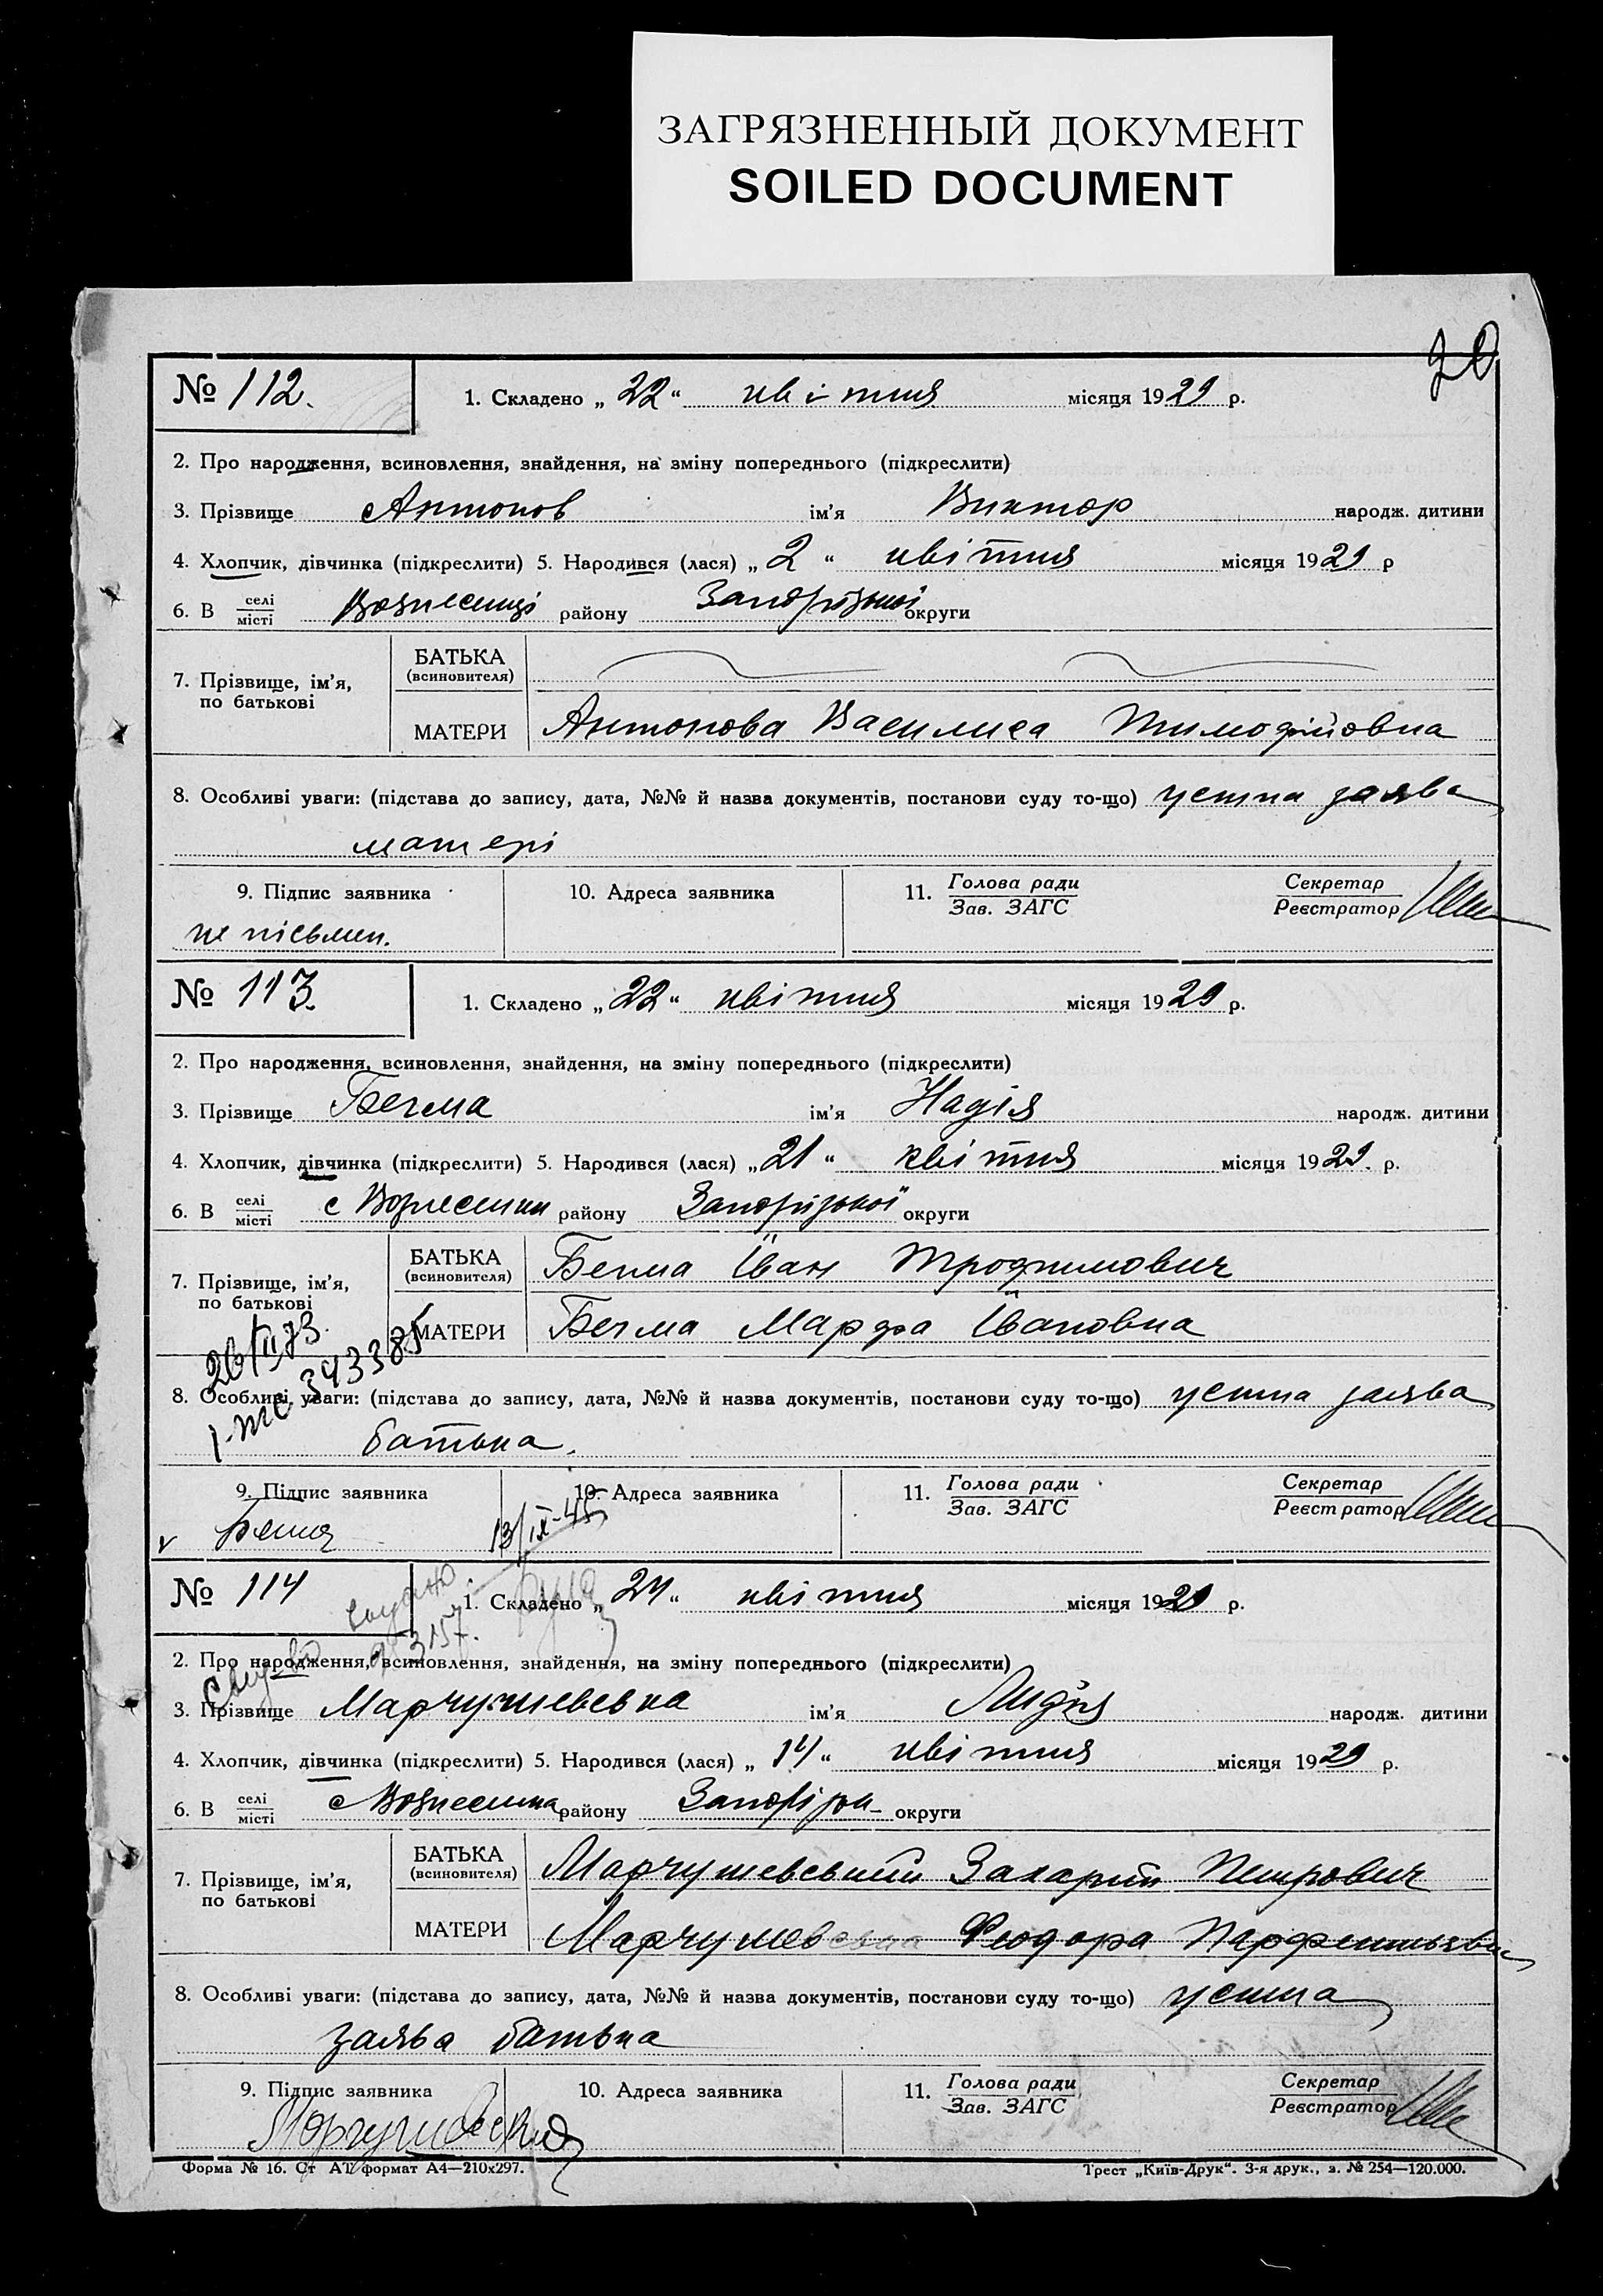 ЗАГРЯЗНЕННЫЙ ДОКУМЕНТ
SOILED DOCUMENT
70
№ 112.
1. Складено „22“ квітня місяця 1929 р.
2. Про народження, всиновлення, знайдення, на зміну попереднього (підкреслити)
3. Прізвище Антонов ім'я Виктор народж. дитини
4. Хлопчик, дівчинка (підкреслити) 5. Народився (лася) „2“ квітня місяця 1929 р
6. В селі місті Вознесенці району Запорізької округи
7. Прізвище, ім'я, по батькові
БАТЬКА (всиновителя)
МАТЕРИ Антонова Василиса Тимофійовна
8. Особливі уваги: (підстава до запису, дата, №№ й назва документів, постанови суду то-що) устна заява
матері
9. Підпис заявника 10. Адреса заявника 11. Голова ради Зав. ЗАГС Секретар Реєстратор
не письмен.
№ 113.
1. Складено „22“ квітня місяця 1929 р.
2. Про народження, всиновлення, знайдення, на зміну попереднього (підкреслити)
3. Прізвище Бегма ім'я Надія народж. дитини
4. Хлопчик, дівчинка (підкреслити) 5. Народився (лася) „21“ квітня місяця 1929. р.
6. В селі місті с Вознесенки району Запорізької округи
7. Прізвище, ім'я, по батькові
БАТЬКА (всиновителя) Бегма Іван Трофимович
МАТЕРИ Бегма Марфа Івановна
26/II 73.
343385
8. Особливі уваги: (підстава до запису, дата, №№ й назва документів, постанови суду то-що) устна заява
батька.
9. Підпис заявника 10. Адреса заявника 11. Голова ради Зав. ЗАГС Секретар Реєстратор
Бегма
13/IX-45
№ 114
1. Складено „24“ квітня місяця 1929 р.
3157.
2. Про народження, всиновлення, знайдення, на зміну попереднього (підкреслити)
3. Прізвище Марчушевська ім'я Лидія народж. дитини
4. Хлопчик, дівчинка (підкреслити) 5. Народився (лася) „14“ квітня місяця 1929 р.
6. В селі місті с Вознесенка району Запоріжк- округи
7. Прізвище, ім'я, по батькові
БАТЬКА (всиновителя) Марчушевський Захарий Петрович
МАТЕРИ Марчушевська Феодора Парфентьевна
8. Особливі уваги: (підстава до запису, дата, №№ й назва документів, постанови суду то-що) устна
заява батька
9. Підпис заявника 10. Адреса заявника 11. Голова ради Зав. ЗАГС Секретар Реєстратор
Форма № 16. Ст АТ формат А4—210х297.
Трест „Київ-Друк“. 3-я друк., з. № 254—120.000.